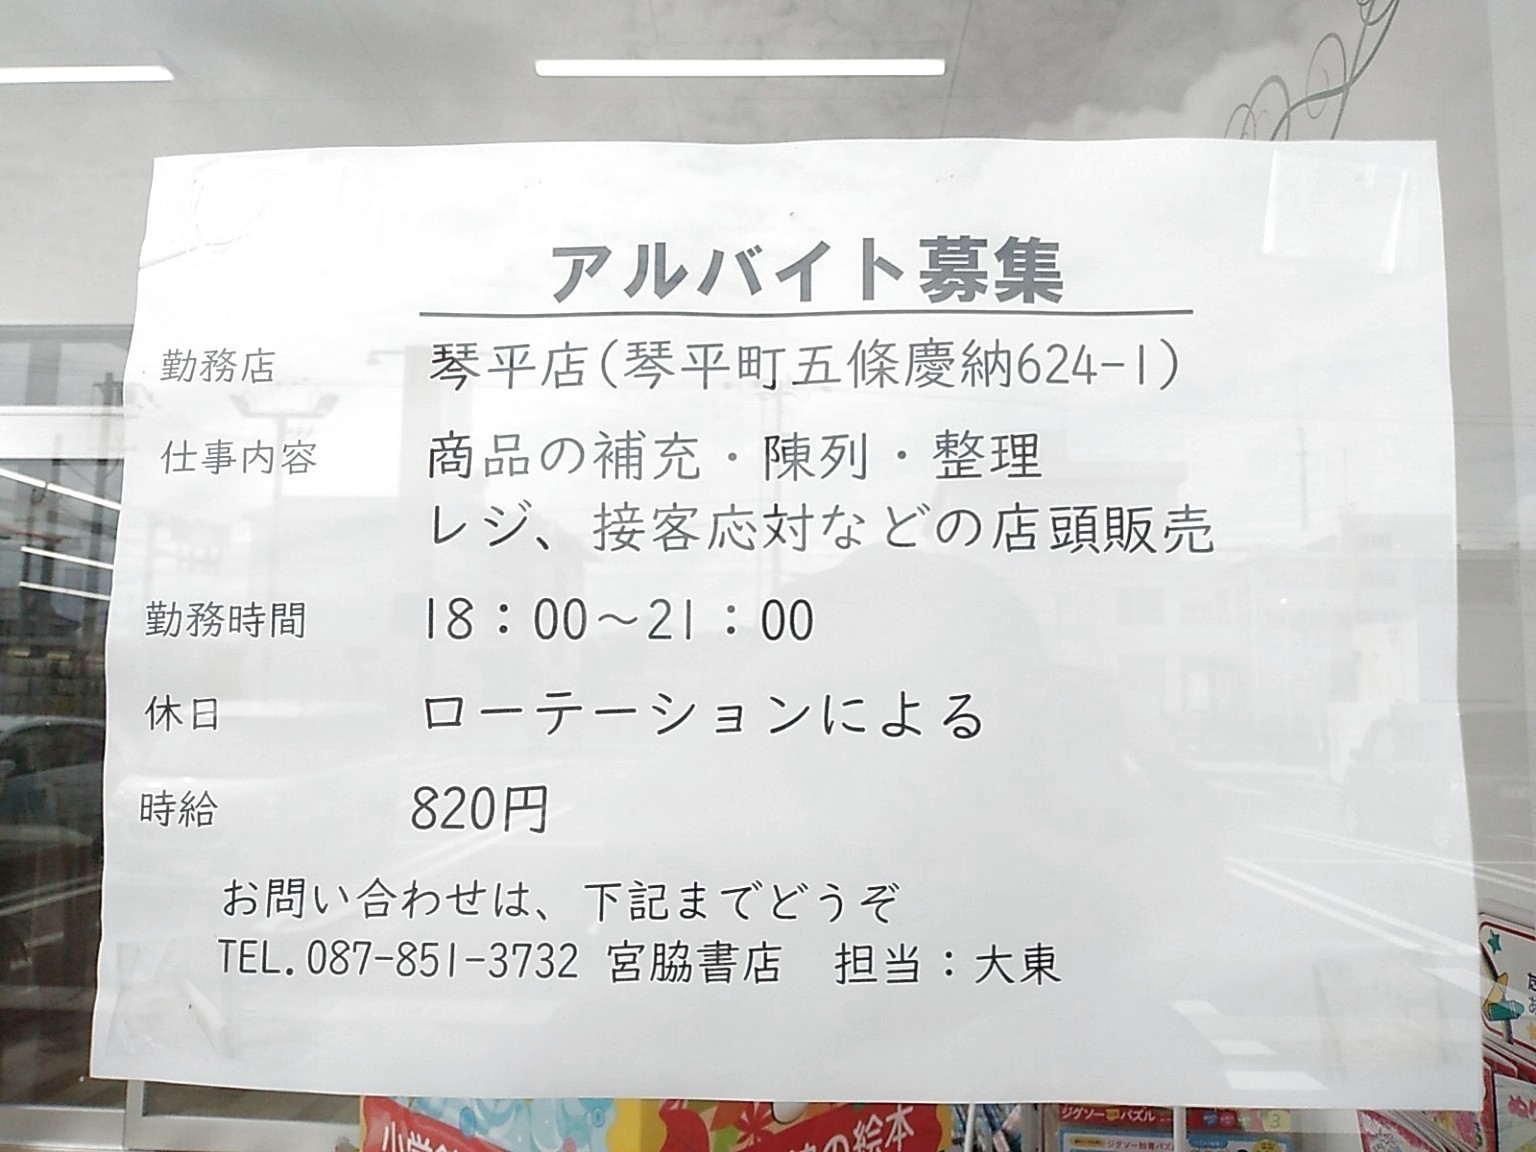 アルバイト募集
勤務店 琴平店(琴平町五條慶納624-1)
仕事内容 商品の補充・陳列・整理
レジ、接客応対などの店頭販売
勤務時間 18：00～21：00
休日 ローテーションによる
時給 820円
お問い合わせは、下記までどうぞ
TEL.087-851-3732 宮脇書店 担当：大東
の絵本
ジグソーパズル